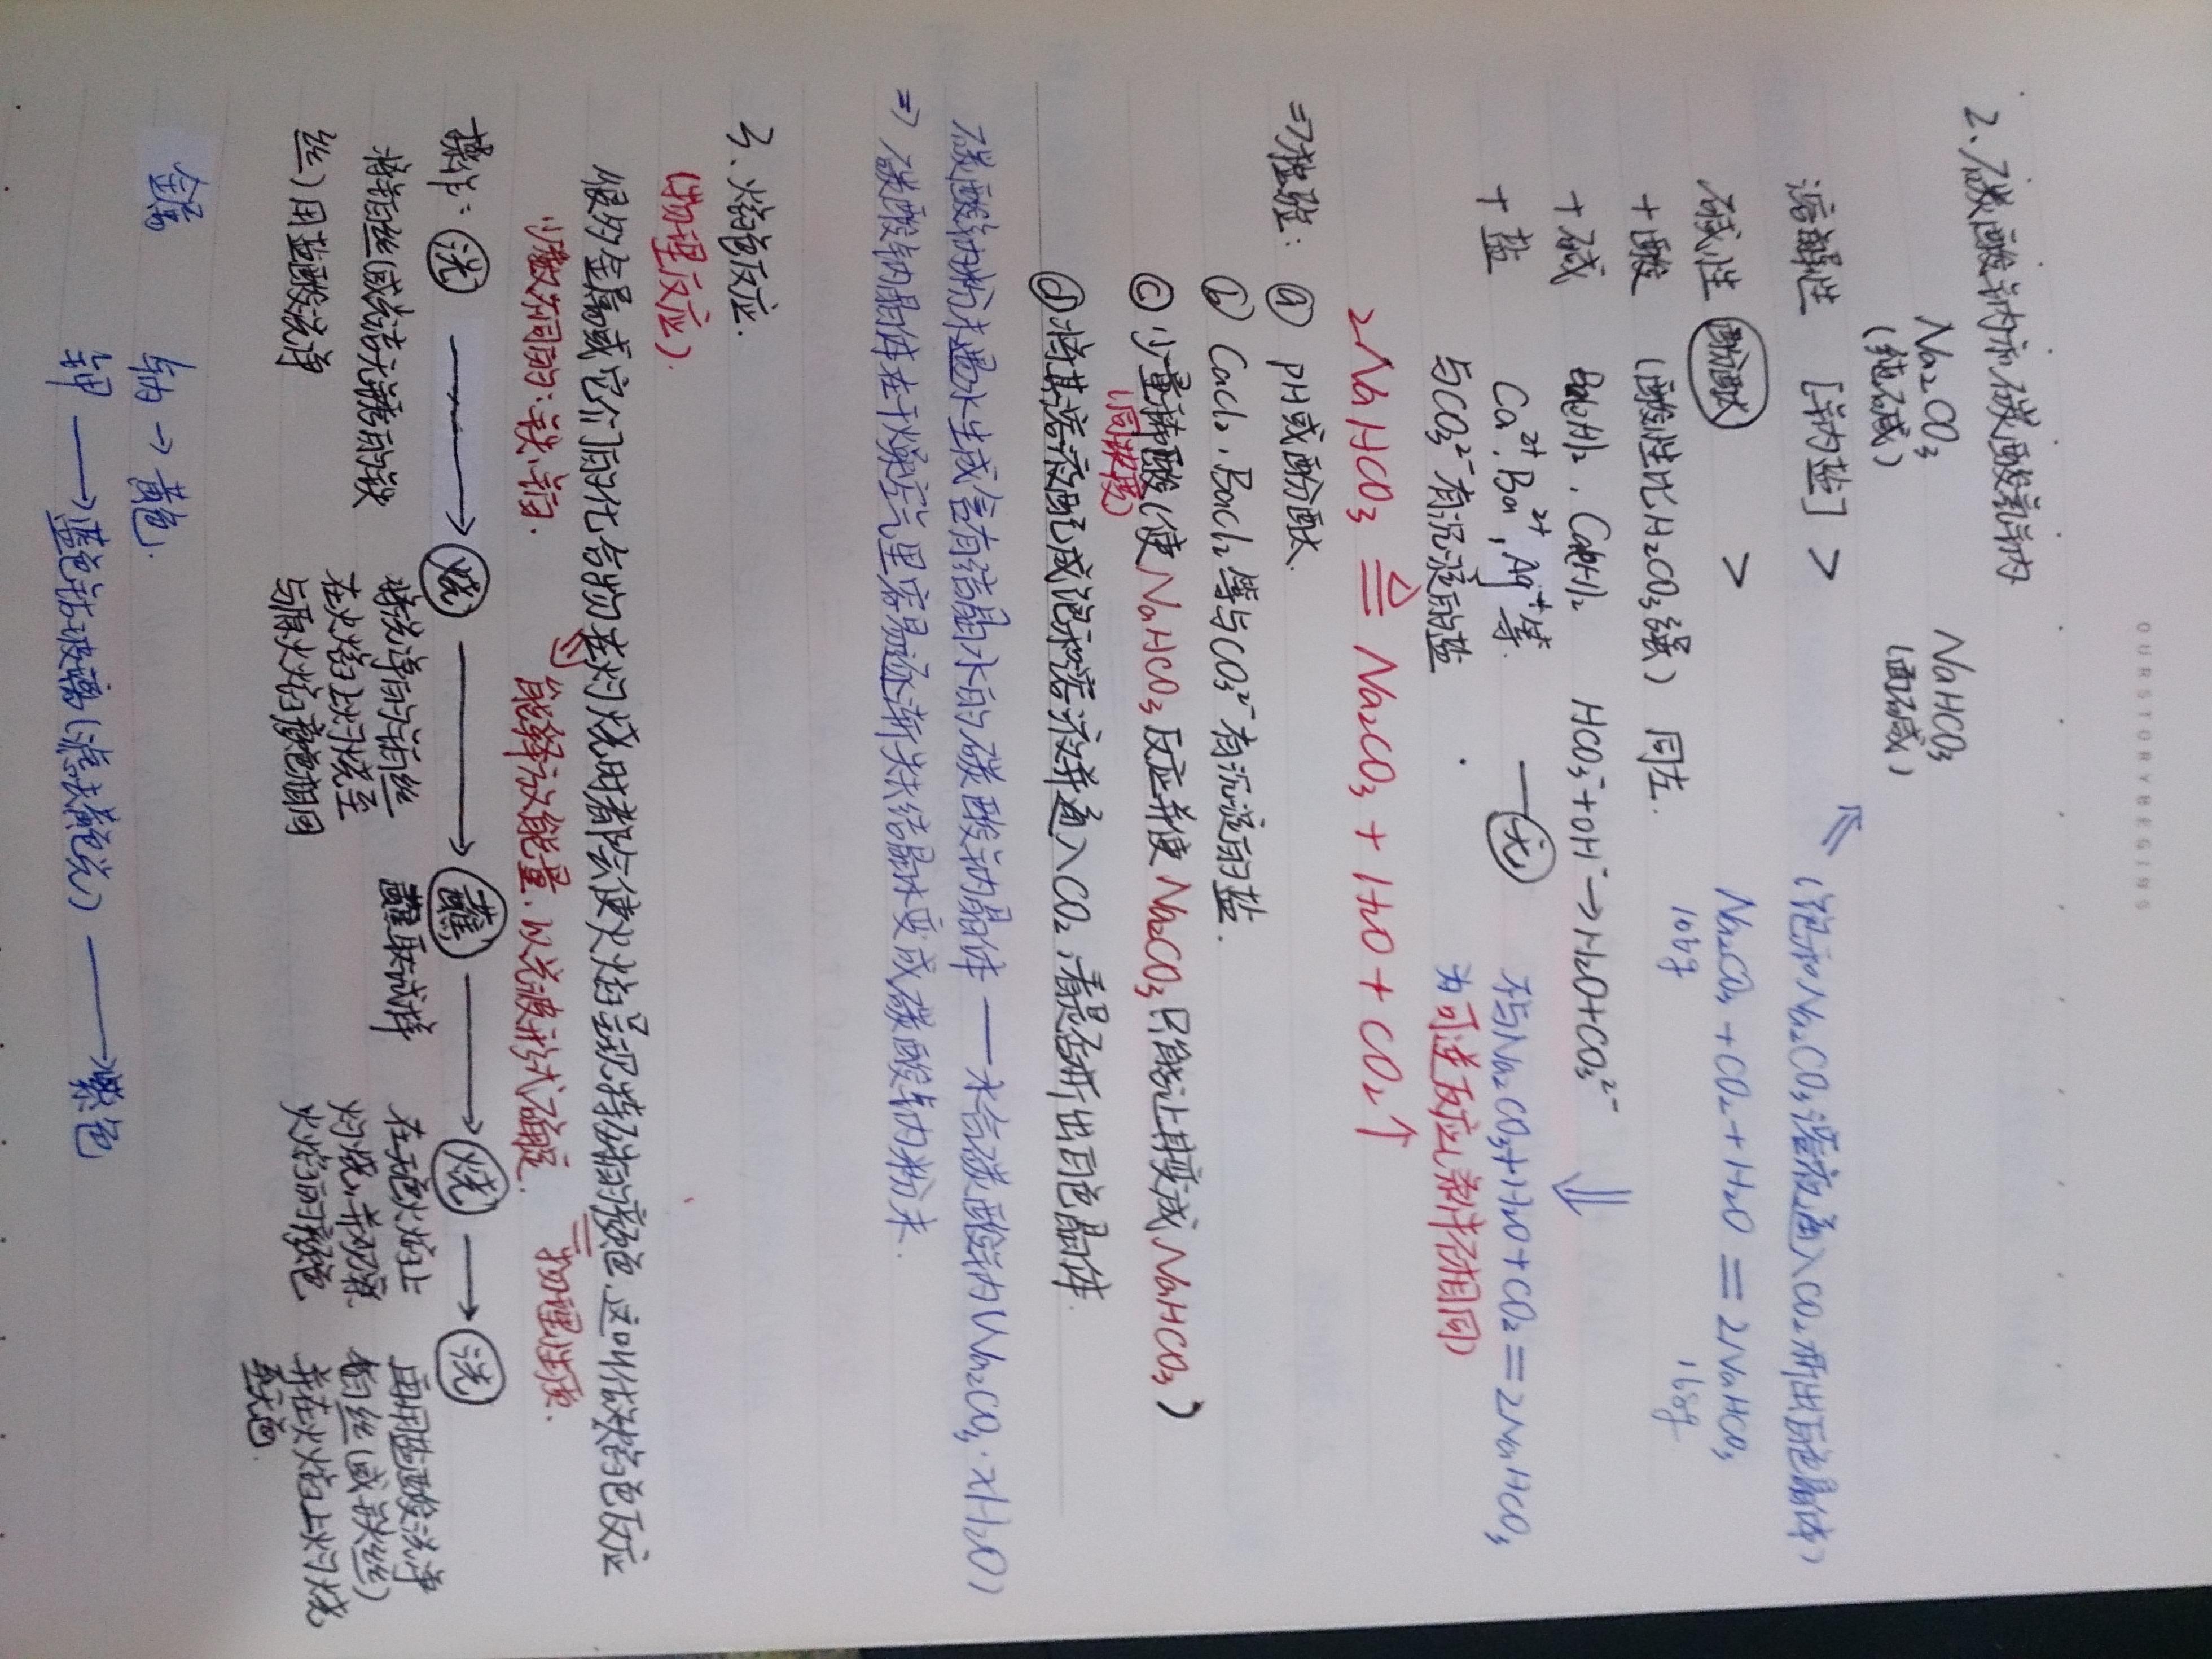 OURSTORYBEGINS
2、碳酸钠和碳酸氢钠
Na₂CO₃ NaHCO₃
(纯碱) (小苏打)
溶解性 [钠盐] > (饱和Na₂CO₃溶液通入CO₂析出白色晶体)
碱性 酚酞 > Na₂CO₃ + CO₂ + H₂O = 2NaHCO₃
106g 168g
+ 酸 (酸性比H₂CO₃强) 同左.
+ 碱 Ba(OH)₂、Ca(OH)₂ HCO₃⁻+OH⁻→H₂O+CO₃²⁻
+ 盐 Ca²⁺、Ba²⁺、Ag⁺等 不与Na₂CO₃+H₂O+CO₂=2NaHCO₃
与CO₃²⁻有沉淀的盐 为可逆反应(条件不相同)
2NaHCO₃ ≜ Na₂CO₃ + H₂O + CO₂↑
⇒检验: ⓐ pH或酚酞.
ⓑ CaCl₂、BaCl₂等与CO₃²⁻有沉淀的盐.
ⓒ 少量稀酸(使NaHCO₃反应并使Na₂CO₃只能让其变成NaHCO₃)
(同浓度)
ⓓ 将其溶液配成饱和溶液并通入CO₂,看是否析出白色晶体.
碳酸钠粉末遇水生成含有结晶水的碳酸钠晶体——水合碳酸钠(Na₂CO₃·xH₂O)
⇒碳酸钠晶体在干燥空气里容易逐渐失去结晶水变成碳酸钠粉末.
3、焰色反应.
(物理反应)
很多金属或它们的化合物在灼烧时都会使火焰呈现特殊的颜色,这叫做焰色反应
少数不同的:铁、铂. 能释放能量,以光波形式辐射. 物理性质.
操作: 洗 → 烧 → 蘸 → 烧 → 洗
将铂丝(或光洁无锈的铁丝)用盐酸洗净
将洗净的铂丝在火焰上灼烧至与原火焰颜色相同
蘸取试样
在无色火焰上灼烧,并观察火焰的颜色
再用盐酸洗净铂丝(或铁丝)并在火焰上灼烧至无色.
金属 钠→黄色.
钾——→紫色